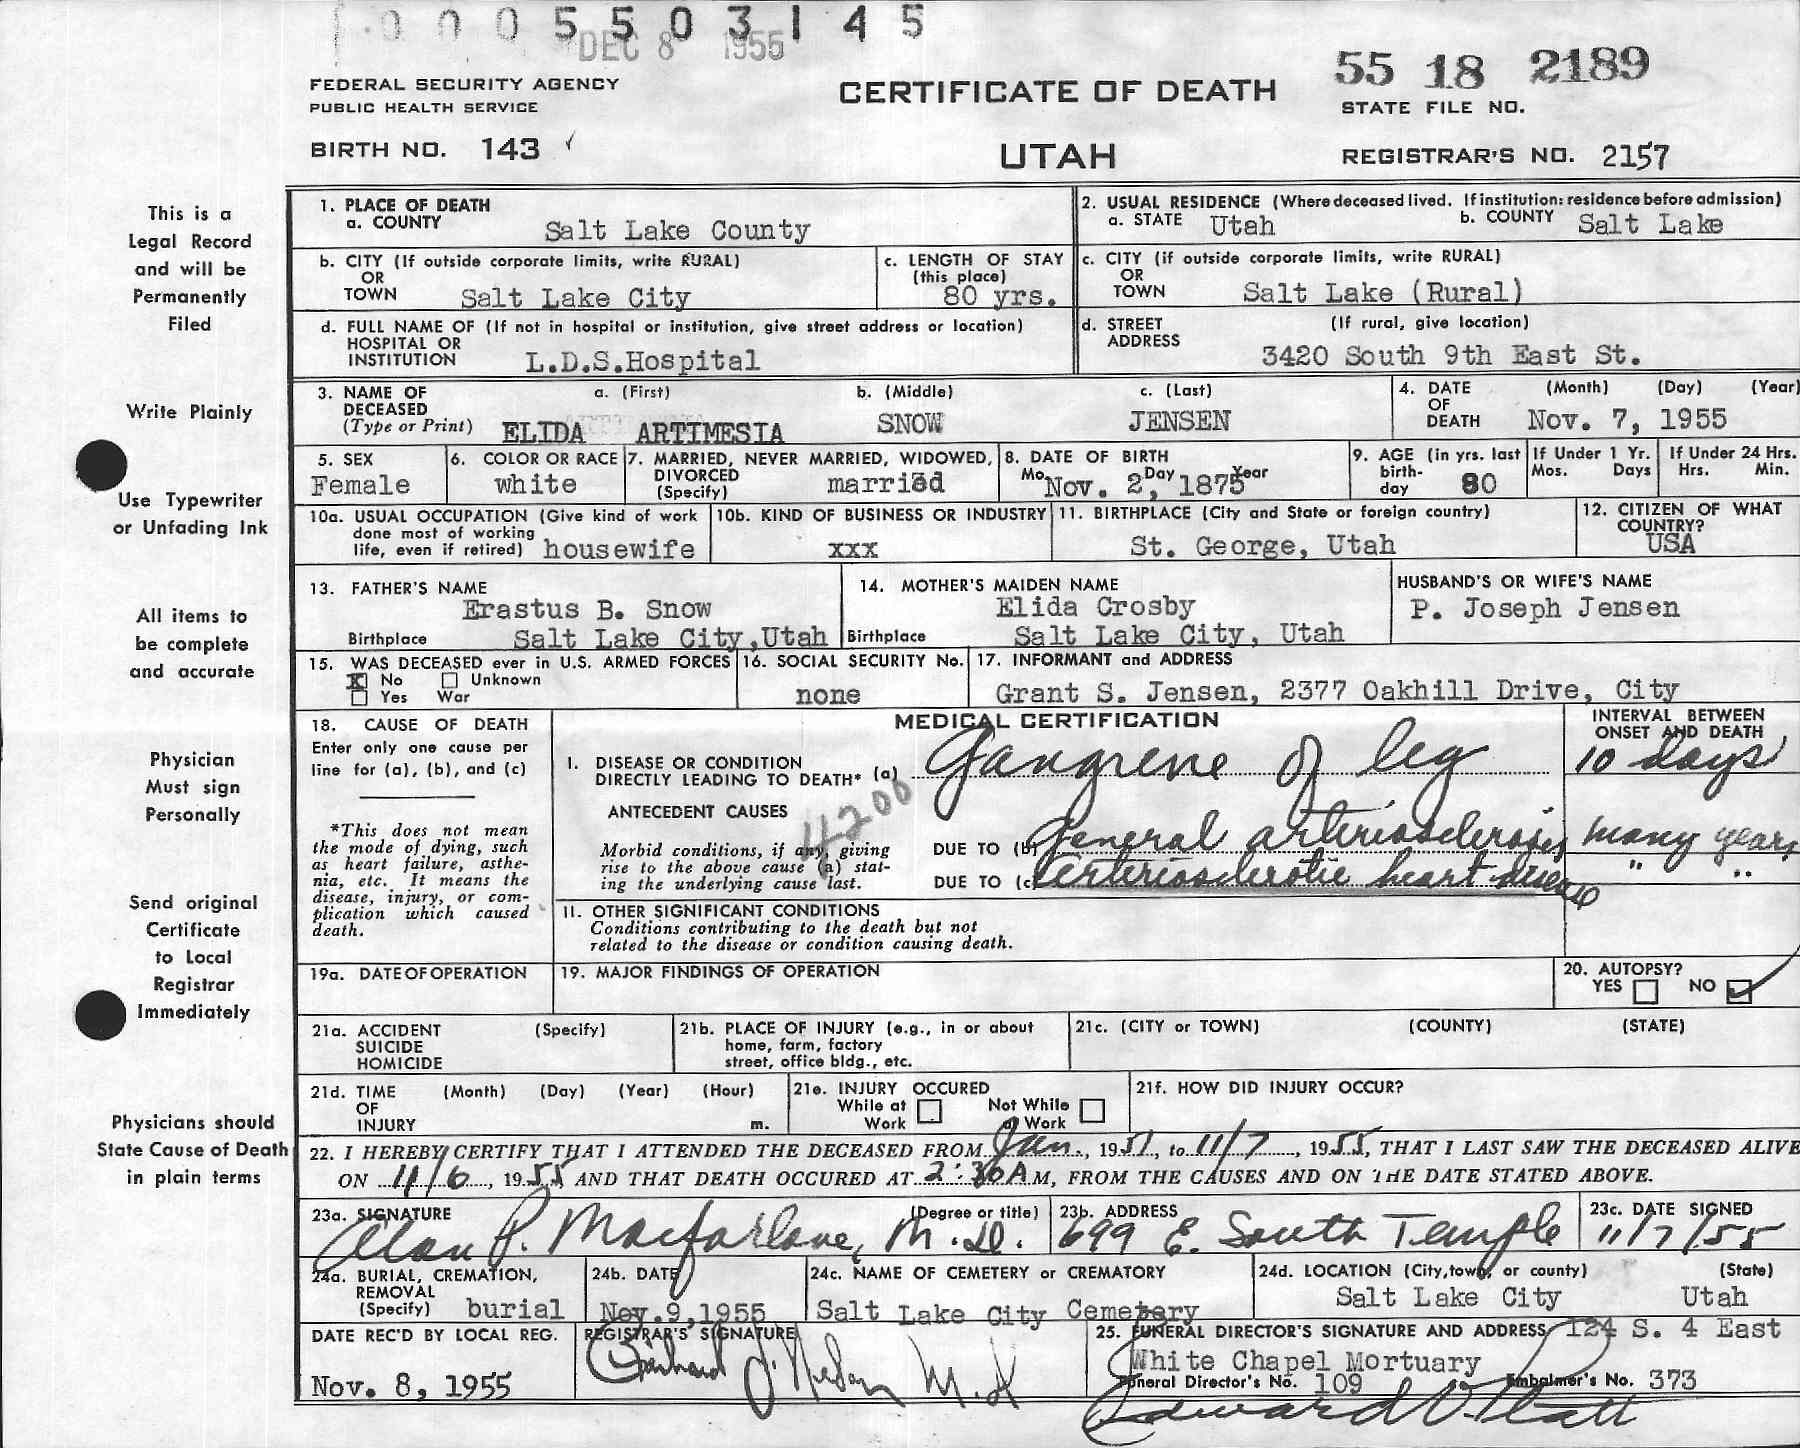 0005503145
DEC 8 1955
FEDERAL SECURITY AGENCY
PUBLIC HEALTH SERVICE
BIRTH NO. 143
CERTIFICATE OF DEATH
UTAH
55 18 2189
STATE FILE NO.
REGISTRAR'S NO. 2157
This is a
Legal Record
and will be
Permanently
Filed
Write Plainly
Use Typewriter
or Unfading Ink
All items to
be complete
and accurate
Physician
Must sign
Personally
Send original
Certificate
to Local
Registrar
Immediately
Physicians should
State Cause of Death
in plain terms
1. PLACE OF DEATH
a. COUNTY Salt Lake County
2. USUAL RESIDENCE (Where deceased lived. If institution: residence before admission)
a. STATE Utah b. COUNTY Salt Lake
b. CITY (If outside corporate limits, write RURAL)
OR
TOWN Salt Lake City
c. LENGTH OF STAY
(this place)
80 yrs.
c. CITY (if outside corporate limits, write RURAL)
OR
TOWN Salt Lake (Rural)
d. FULL NAME OF (If not in hospital or institution, give street address or location)
HOSPITAL OR
INSTITUTION L.D.S.Hospital
d. STREET (If rural, give location)
ADDRESS
3420 South 9th East St.
3. NAME OF a. (First) b. (Middle) c. (Last)
DECEASED
(Type or Print) ELIDA ARTIMESIA SNOW JENSEN
4. DATE (Month) (Day) (Year)
OF
DEATH Nov. 7, 1955
5. SEX
Female
6. COLOR OR RACE
white
7. MARRIED, NEVER MARRIED, WIDOWED,
DIVORCED
(Specify) married
8. DATE OF BIRTH
Mo. Day Year
Nov. 2, 1875
9. AGE (in yrs. last
birth-
day 80
If Under 1 Yr.
Mos. Days
If Under 24 Hrs.
Hrs. Min.
10a. USUAL OCCUPATION (Give kind of work
done most of working
life, even if retired) housewife
10b. KIND OF BUSINESS OR INDUSTRY
xxx
11. BIRTHPLACE (City and State or foreign country)
St. George, Utah
12. CITIZEN OF WHAT
COUNTRY?
USA
13. FATHER'S NAME
Erastus B. Snow
Birthplace Salt Lake City,Utah
14. MOTHER'S MAIDEN NAME
Elida Crosby
Birthplace Salt Lake City, Utah
HUSBAND'S OR WIFE'S NAME
P. Joseph Jensen
15. WAS DECEASED ever in U.S. ARMED FORCES
X No Unknown
Yes War
16. SOCIAL SECURITY No.
none
17. INFORMANT and ADDRESS
Grant S. Jensen, 2377 Oakhill Drive, City
18. CAUSE OF DEATH
Enter only one cause per
line for (a), (b), and (c)
*This does not mean
the mode of dying, such
as heart failure, asthe-
nia, etc. It means the
disease, injury, or com-
plication which caused
death.
MEDICAL CERTIFICATION
INTERVAL BETWEEN
ONSET AND DEATH
I. DISEASE OR CONDITION
DIRECTLY LEADING TO DEATH* (a) Gangrene of leg 10 days
ANTECEDENT CAUSES
4200
Morbid conditions, if any, giving
rise to the above cause (a) stat-
ing the underlying cause last.
DUE TO (b) General arteriosclerosis many years
DUE TO (c) Arteriosclerotic heart disease " "
II. OTHER SIGNIFICANT CONDITIONS
Conditions contributing to the death but not
related to the disease or condition causing death.
19a. DATE OF OPERATION
19. MAJOR FINDINGS OF OPERATION
20. AUTOPSY?
YES NO ✓
21a. ACCIDENT (Specify)
SUICIDE
HOMICIDE
21b. PLACE OF INJURY (e.g., in or about
home, farm, factory
street, office bldg., etc.
21c. (CITY or TOWN) (COUNTY) (STATE)
21d. TIME (Month) (Day) (Year) (Hour)
OF
INJURY m.
21e. INJURY OCCURED
While at Not While
Work at Work
21f. HOW DID INJURY OCCUR?
22. I HEREBY CERTIFY THAT I ATTENDED THE DECEASED FROM Jan., 1951, to 11/7, 1955, THAT I LAST SAW THE DECEASED ALIVE
ON 11/6, 1955 AND THAT DEATH OCCURED AT 2:30A M, FROM THE CAUSES AND ON THE DATE STATED ABOVE.
23a. SIGNATURE (Degree or title)
Alan P. Macfarlane, M.D.
23b. ADDRESS
699 E. South Temple
23c. DATE SIGNED
11/7/55
24a. BURIAL, CREMATION,
REMOVAL
(Specify) burial
24b. DATE
Nov.9,1955
24c. NAME OF CEMETERY or CREMATORY
Salt Lake City Cemetery
24d. LOCATION (City, town, or county) (State)
Salt Lake City Utah
DATE REC'D BY LOCAL REG.
Nov. 8, 1955
REGISTRAR'S SIGNATURE
25. FUNERAL DIRECTOR'S SIGNATURE AND ADDRESS 124 S. 4 East
White Chapel Mortuary
Funeral Director's No. 109 Embalmer's No. 373
Edward V. Platt